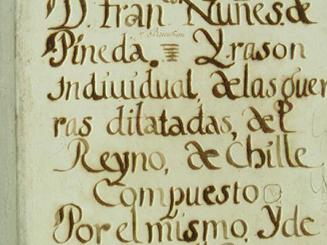 D. fran.co Nuñes, de
Pineda. Y rason
indiuidual, de las guer
ras dilatadas, del
Reyno, de Chille
Compuesto
Por el mismo, y de